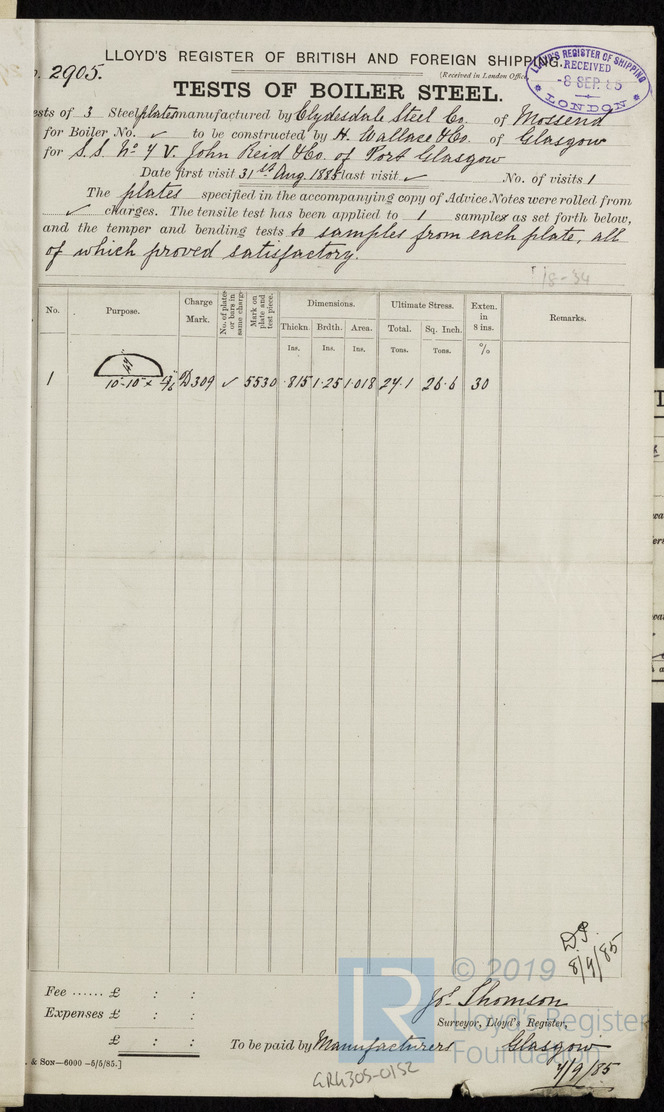 LLOYD'S REGISTER OF BRITISH AND FOREIGN SHIPPING.
2905.
(Received in London Office,
LLOYD'S REGISTER OF SHIPPING
RECEIVED
-8 SEP. 85
LONDON
TESTS OF BOILER STEEL.
ests of 3 Steel plates manufactured by Clydesdale Steel Co. of Mossend
for Boiler No. ✓ to be constructed by H. Wallace & Co. of Glasgow
for S.S. No 4 V. John Reid & Co. of Port Glasgow
Date first visit 31st Aug. 1885 last visit ✓ No. of visits 1
The plates specified in the accompanying copy of Advice Notes were rolled from
✓ charges. The tensile test has been applied to 1 samples as set forth below,
and the temper and bending tests to samples from each plate, all
of which proved satisfactory.
18-84
No. Purpose. Charge Mark. No. of plates or bars in same charge Mark on plate and test piece. Dimensions. Ultimate Stress. Exten. in 8 ins. Remarks.
Thickn. Brdth. Area. Total. Sq. Inch.
Ins. Ins. Ins. Tons. Tons. %
1 10'-10" × D309 ✓ 5530 .815 1.25 1.018 27.1 26.6 30
D.S.
8/9/85
© 2019
Lloyd's Register
Foundation
LR
Fee ...... £ : :
Expenses £ : :
£ : :
Jos. Thomson
Surveyor, Lloyd's Register,
To be paid by Manufacturers Glasgow
7/9/85
& SON—6000 —5/5/85.]
GRG305-0152